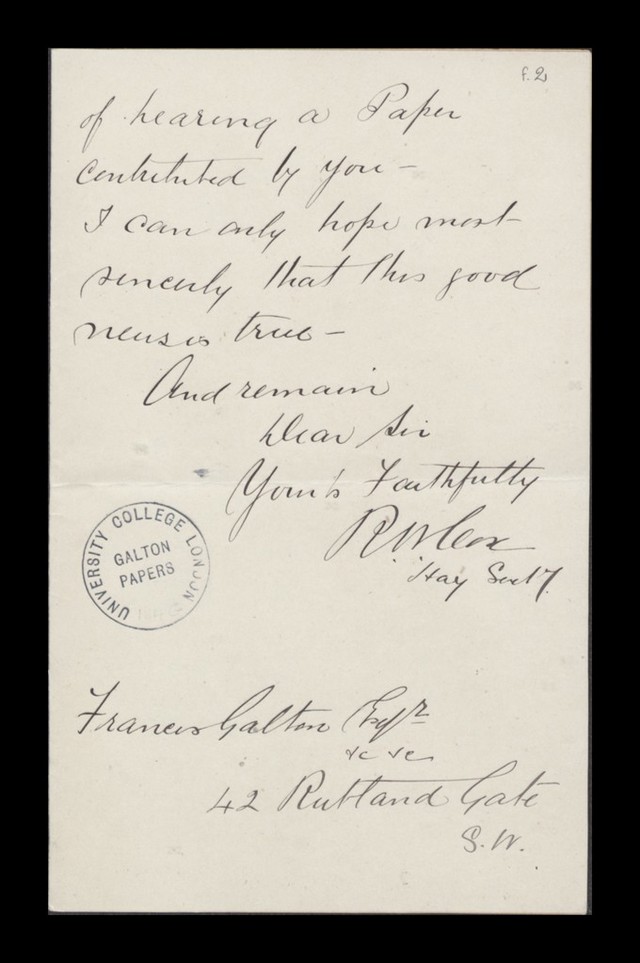 f. 2
of hearing a Paper
contributed by you —
I can only hope most
sincerely that this good
news is true —
And remain
Dear Sir
Your's Faithfully
R. W. Cox
Hay Sect7.
UNIVERSITY COLLEGE LONDON
GALTON
PAPERS
Francis Galton Esqr
&c &c
42 Rutland Gate
S.W.